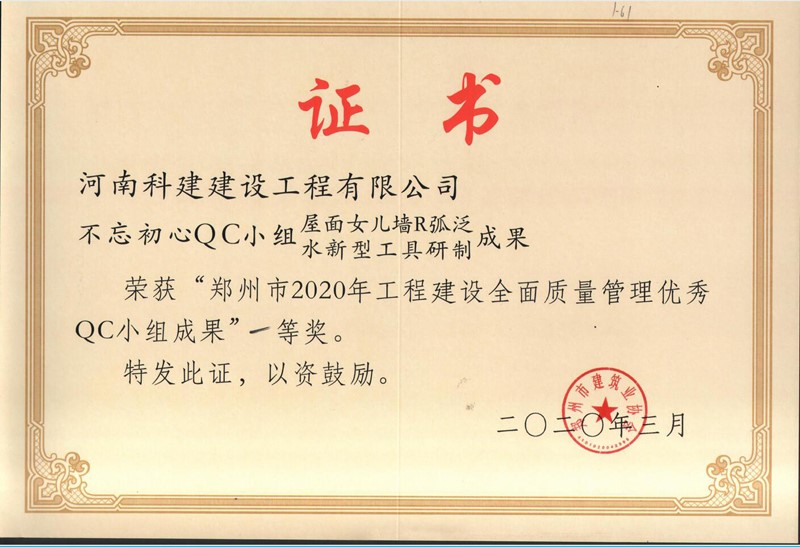 1-61
证书
河南科建建设工程有限公司
不忘初心QC小组屋面女儿墙R弧泛水新型工具研制成果
荣获“郑州市2020年工程建设全面质量管理优秀
QC小组成果”一等奖。
特发此证，以资鼓励。
郑州市建筑业协会
二〇二〇年三月